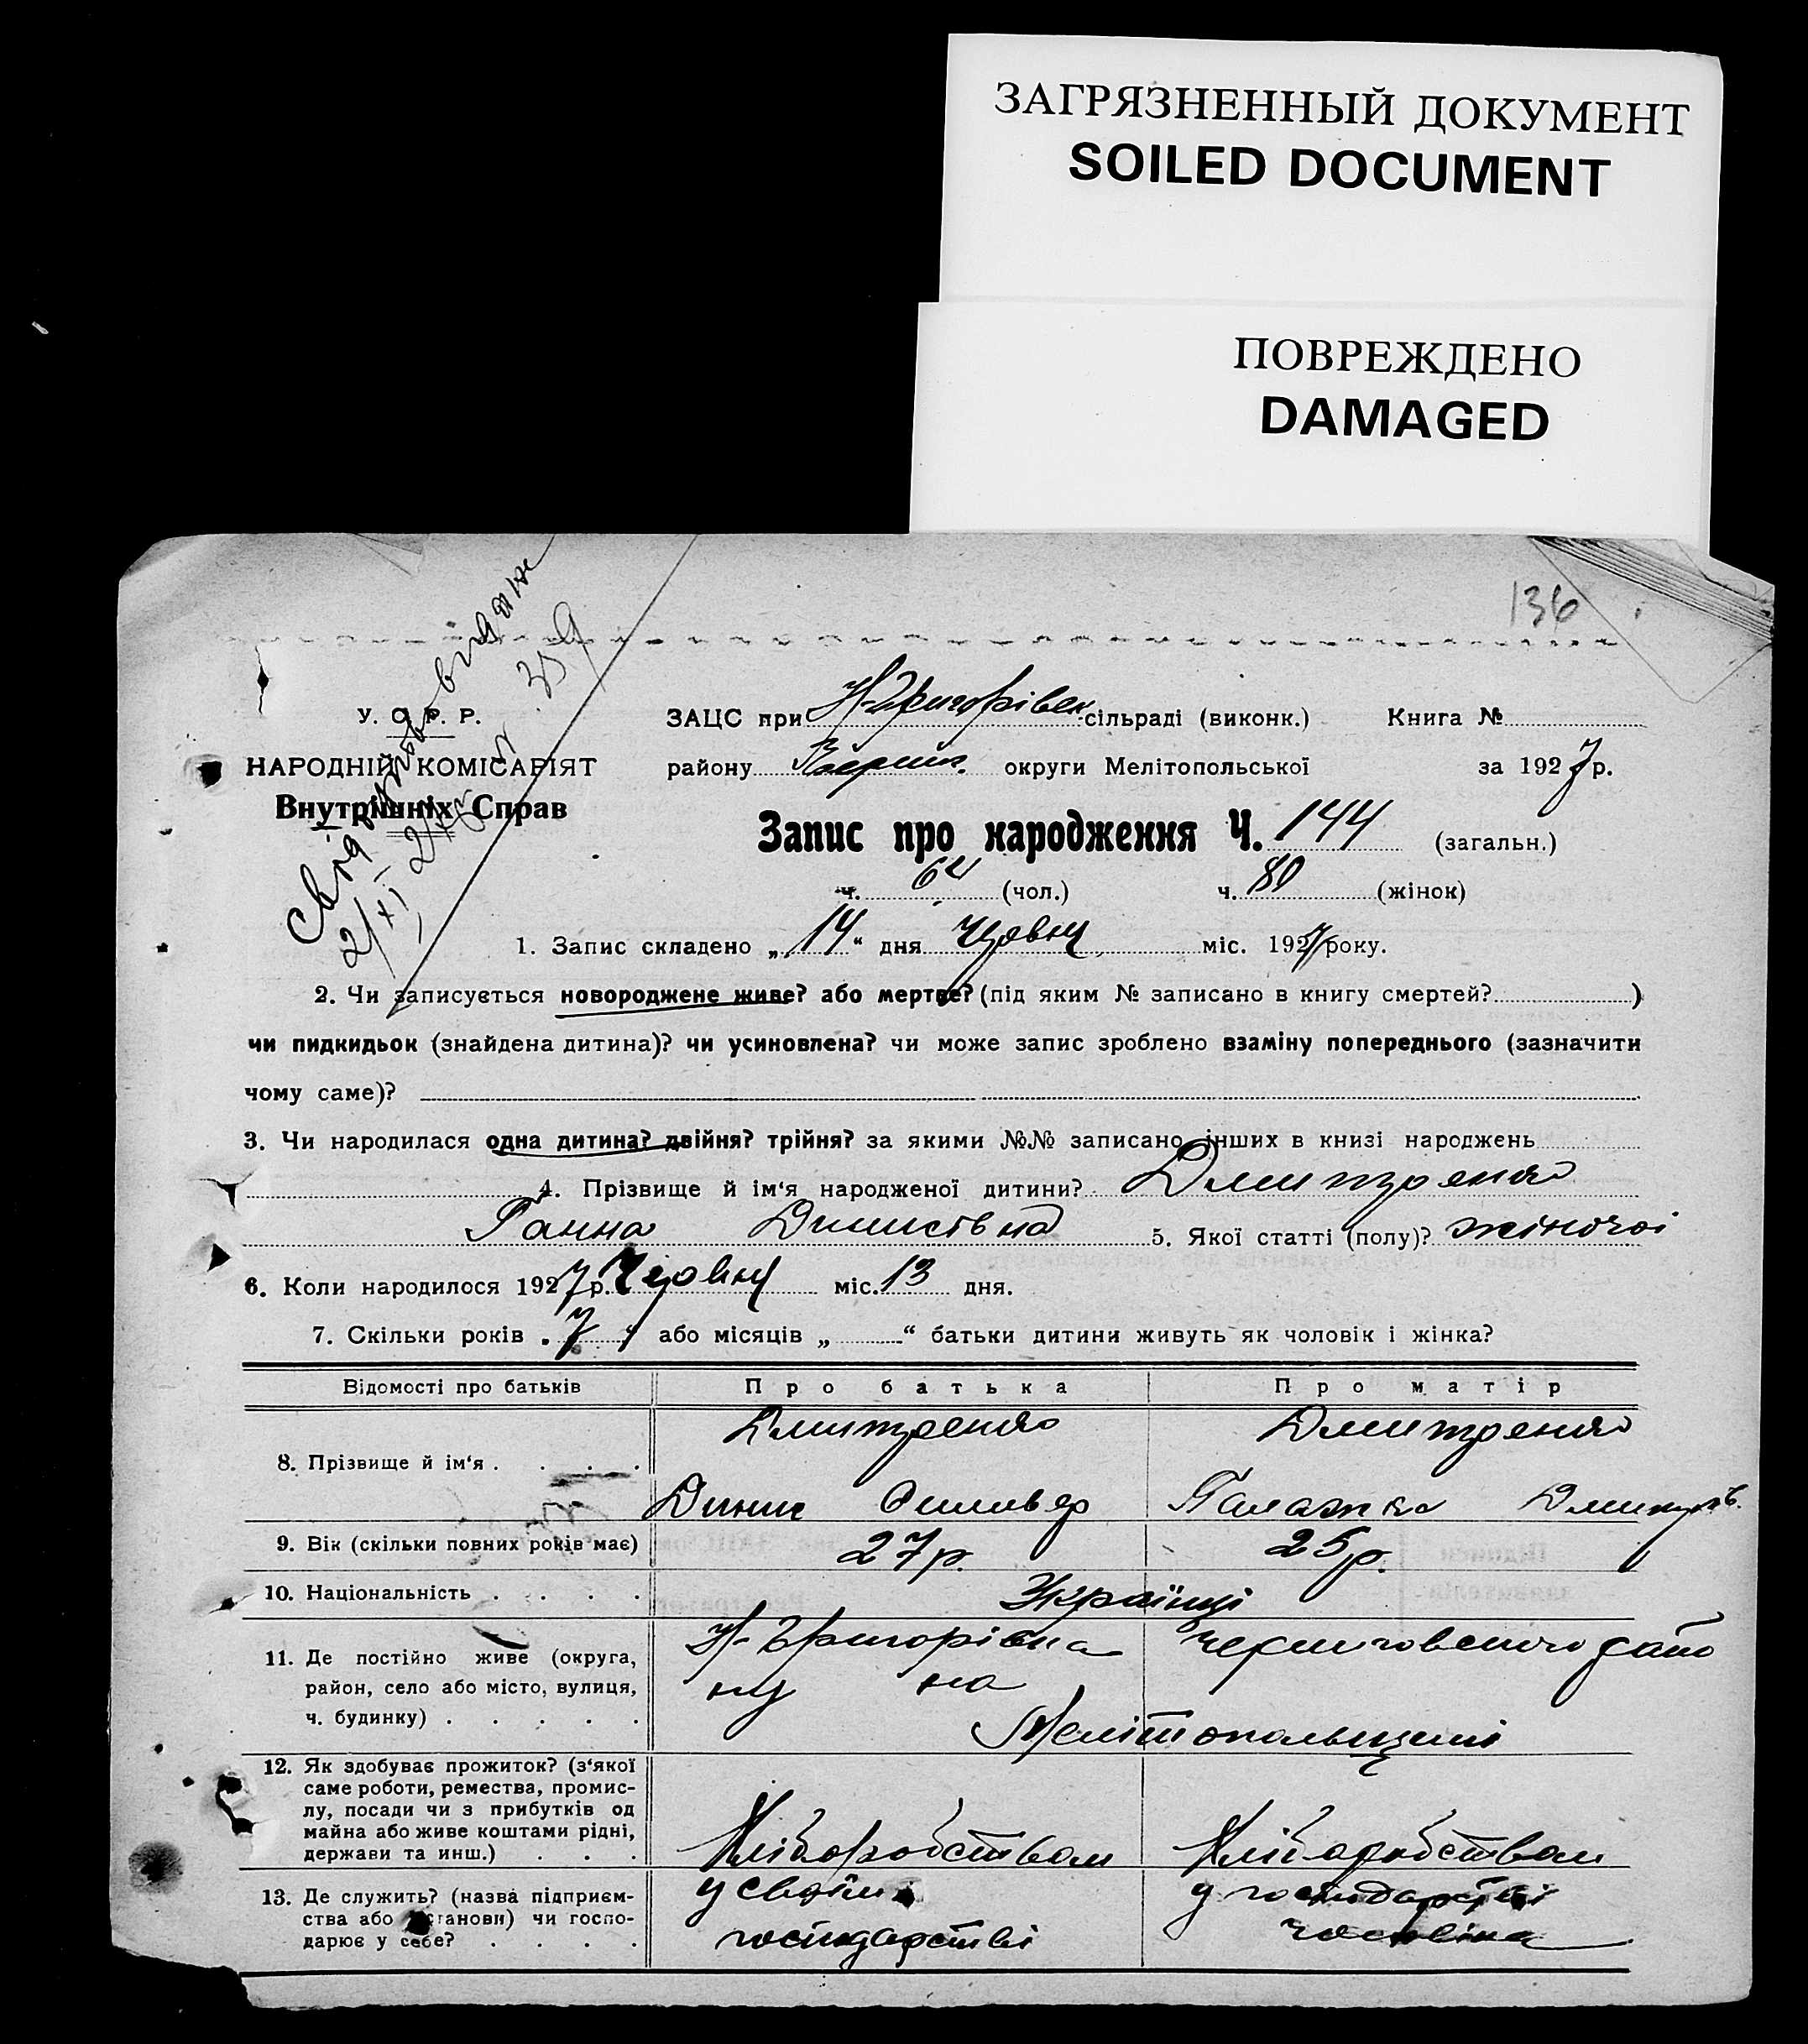 ЗАГРЯЗНЕННЫЙ ДОКУМЕНТ
SOILED DOCUMENT
ПОВРЕЖДЕНО
DAMAGED
136
У. С. Р. Р.
НАРОДНІЙ КОМІСАРІЯТ
Внутрішніх Справ
ЗАЦС при Н-Григорівськ сільраді (виконк.) Книга №
району округи Мелітопольської за 1927 р.
Запис про народження Ч. 144 (загальн.)
ч. 64 (чол.) ч. 80 (жінок)
1. Запис складено „14“ дня Червня міс. 1927 року.
2. Чи записується новороджене живе? або мертве? (під яким № записано в книгу смертей? )
чи пидкидьок (знайдена дитина)? чи усиновлена? чи може запис зроблено взаміну попереднього (зазначити
чому саме)?
3. Чи народилася одна дитина? двійня? трійня? за якими №№ записано інших в книзі народжень
4. Прізвище й ім‘я народженої дитини? Дмитренко
Ганна Динисівна 5. Якої статті (полу)? жіночої
6. Коли народилося 1927 р. Червня міс. 13 дня.
7. Скільки років „7“ або місяців „ “ батьки дитини живуть як чоловік і жінка?
Відомості про батьків Про батька Про матір
8. Прізвище й ім‘я . . . . Дмитренко Дмитренко
Динис Палажка Дмитрів.
9. Вік (скільки повних років має) 27 р. 25 р.
10. Національність . . . . Українці
11. Де постійно живе (округа, Н-Григорівка Черниговського райо
район, село або місто, вулиця, ну на
ч. будинку) . . . . . Мелітопольщині
12. Як здобуває прожиток? (з‘якої
саме роботи, ремества, промис-
лу, посади чи з прибутків од
майна або живе коштами рідні,
держави та инш.) . . . Хліборобством Хліборобством
13. Де служить? (назва підприєм- у своїм у господарстві
ства або установи) чи госпо-
дарює у себе? . . . . господарстві чоловіка